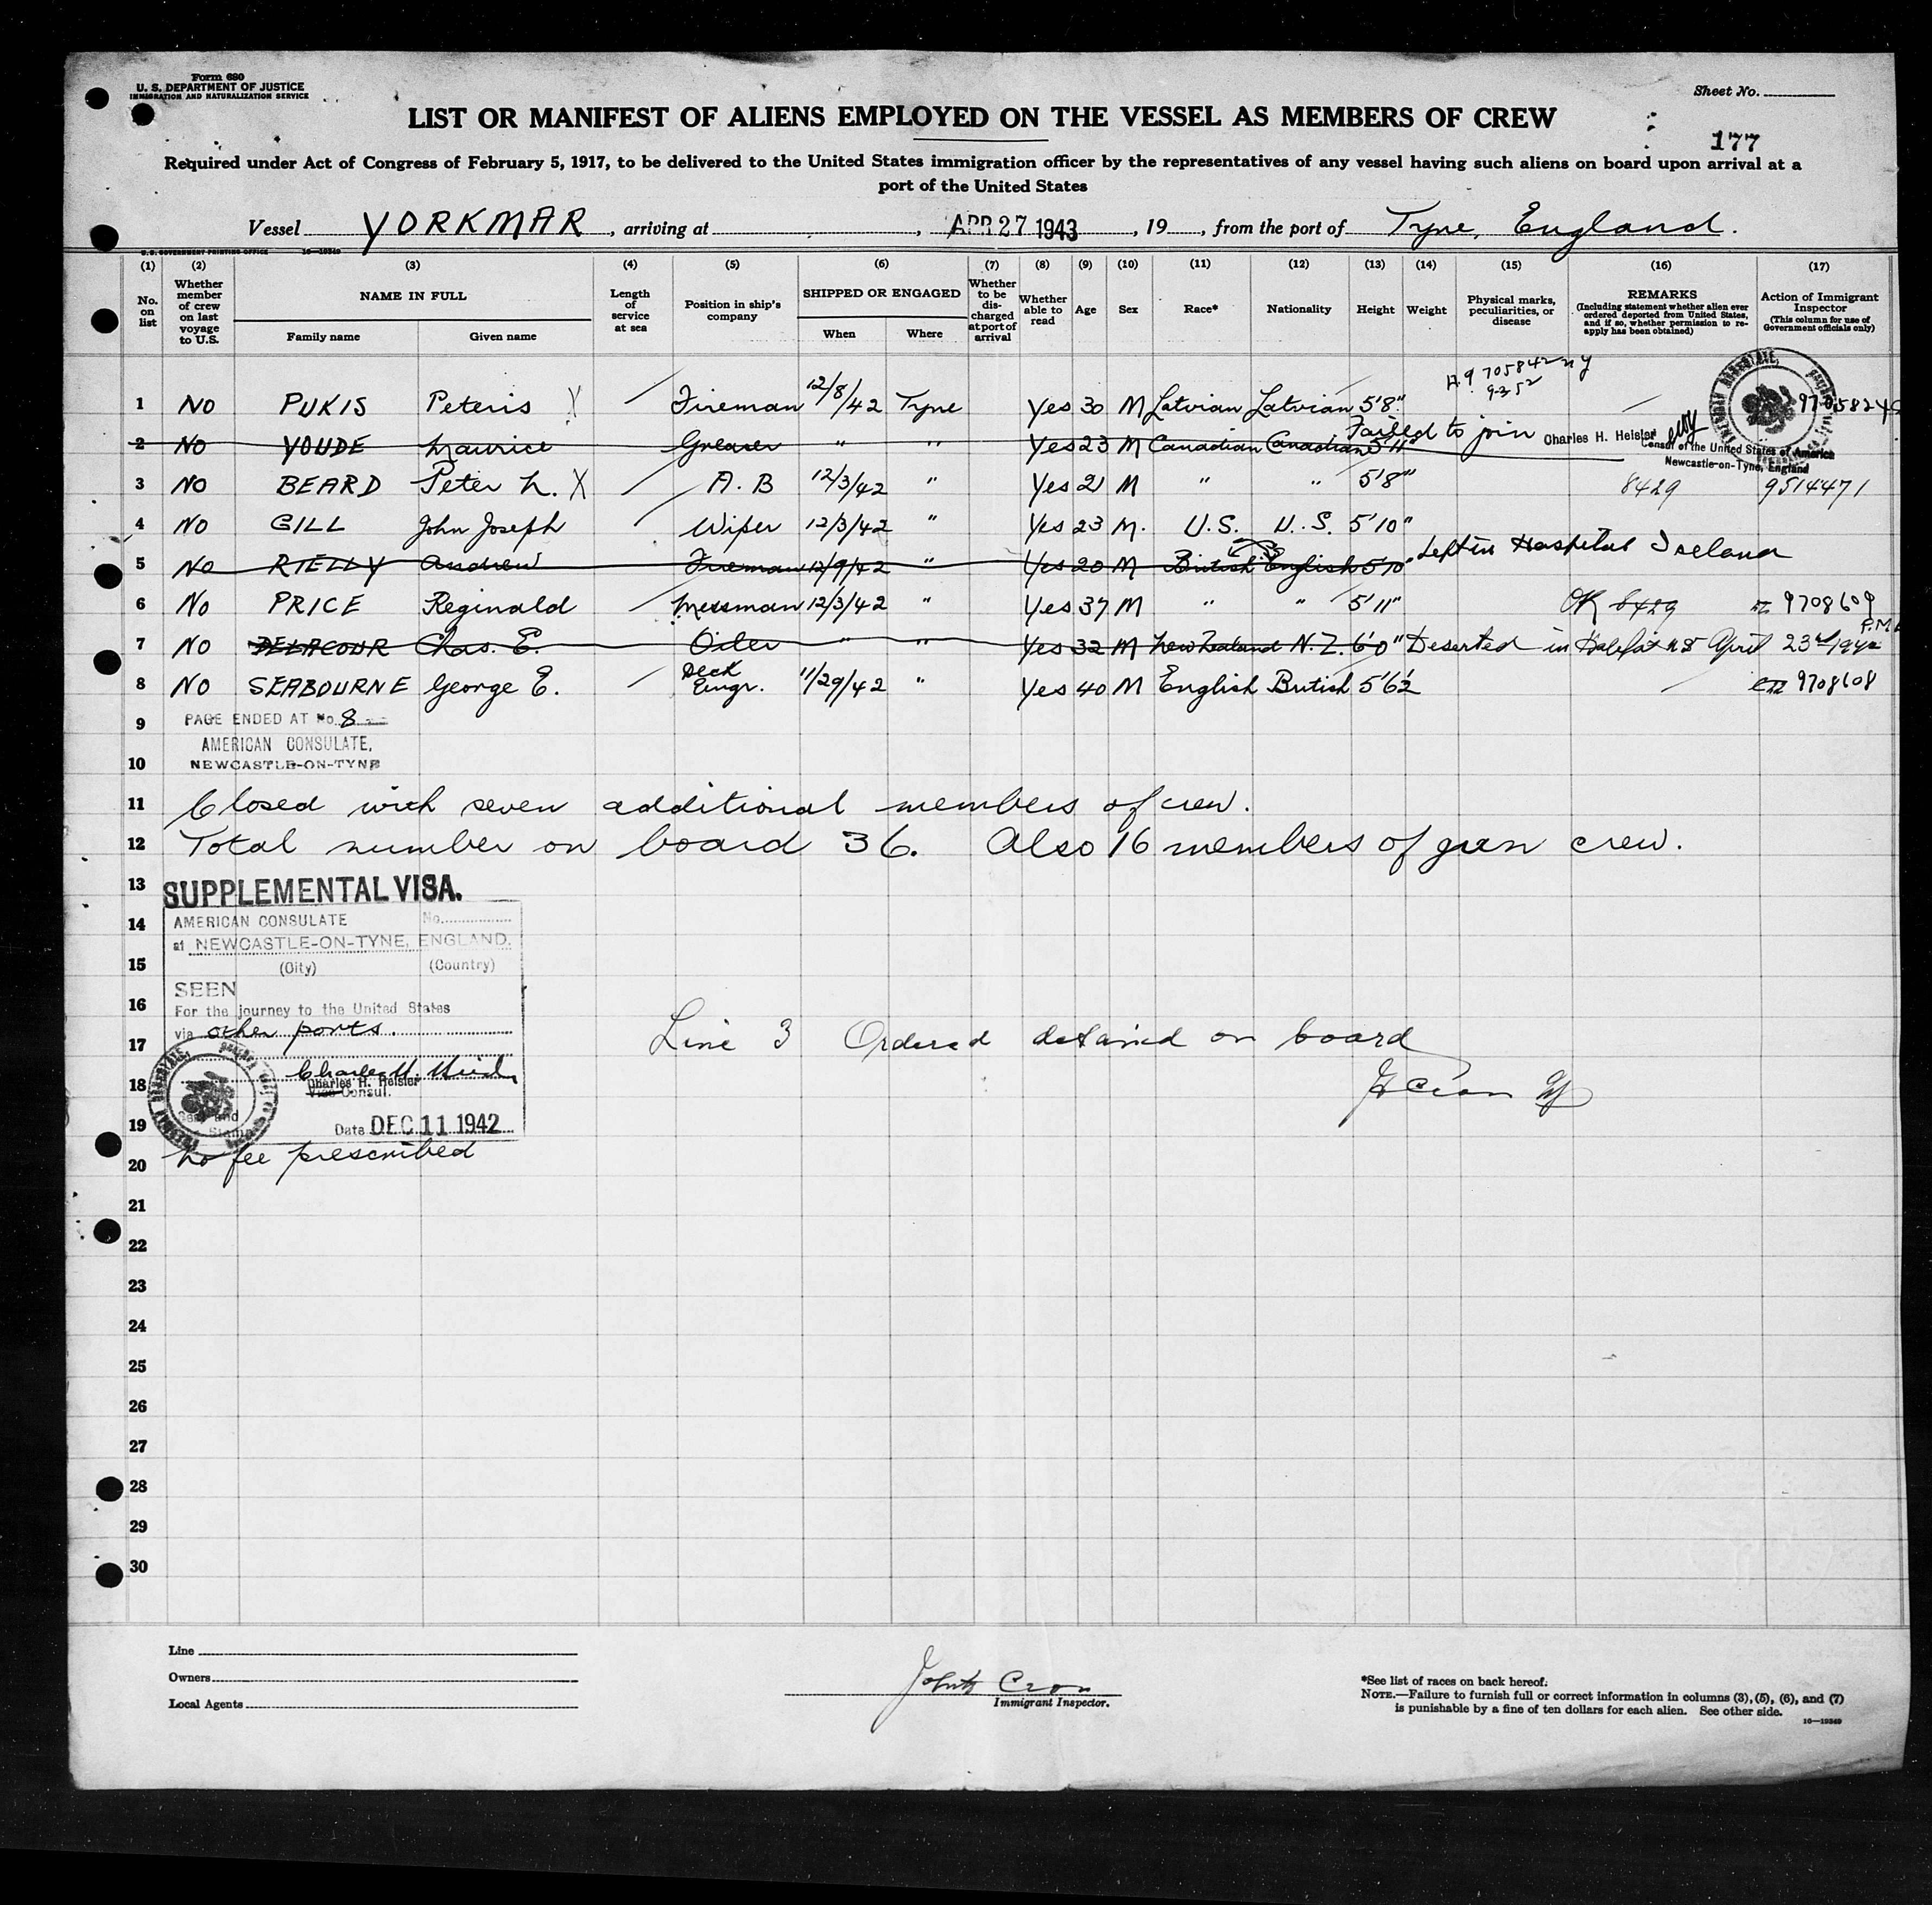 Form 680
U. S. DEPARTMENT OF JUSTICE
IMMIGRATION AND NATURALIZATION SERVICE
Sheet No.
LIST OR MANIFEST OF ALIENS EMPLOYED ON THE VESSEL AS MEMBERS OF CREW
177
Required under Act of Congress of February 5, 1917, to be delivered to the United States immigration officer by the representatives of any vessel having such aliens on board upon arrival at a
port of the United States
Vessel YORKMAR, arriving at , APR 27 1943, 19 , from the port of Tyne, England.
U. S. GOVERNMENT PRINTING OFFICE 16—19349
(1) (2) (3) (4) (5) (6) (7) (8) (9) (10) (11) (12) (13) (14) (15) (16) (17)
No. on list
Whether member of crew on last voyage to U.S.
NAME IN FULL
Family name
Given name
Length of service at sea
Position in ship's company
SHIPPED OR ENGAGED
When
Where
Whether to be discharged at port of arrival
Whether able to read
Age
Sex
Race*
Nationality
Height
Weight
Physical marks, peculiarities, or disease
REMARKS
(Including statement whether alien ever ordered deported from United States, and if so, whether permission to reapply has been obtained)
Action of Immigrant Inspector
(This column for use of Government officials only)
1 NO PUKIS Peteris X Fireman 12/8/42 Tyne Yes 30 M Latvian Latvian 5'8"
2 NO YOUDE Maurice Greaser " " Yes 23 M Canadian Canadian 5'11" Failed to join
Charles H. Heisler
Consul of the United States of America
Newcastle-on-Tyne, England
3 NO BEARD Peter L. X A. B 12/3/42 " Yes 21 M " " 5'8" 8429 9514471
4 NO GILL John Joseph Wiper 12/3/42 " Yes 23 M. U.S. U.S. 5'10"
5 No RIELLY Andrew Fireman 12/9/42 " Yes 20 M British English 5'10" Left in Hospital Iceland
6 No PRICE Reginald Messman 12/3/42 " Yes 37 M " " 5'11" OK 8429 9708609
7 NO DELACOUR Chas. E. Oiler " " Yes 32 M New Zealand N.Z. 6'0" Deserted in Halifax NS April 23rd
8 NO SEABOURNE George E. Deck Engr. 11/29/42 " Yes 40 M English British 5'6½ 9708608
9 PAGE ENDED AT No. 8
AMERICAN CONSULATE,
10 NEWCASTLE-ON-TYNE
11 Closed with seven additional members of crew.
12 Total number on board 36. Also 16 members of gun crew.
13 SUPPLEMENTAL VISA.
14 AMERICAN CONSULATE No.
at NEWCASTLE-ON-TYNE, ENGLAND.
15 (City) (Country)
SEEN
16 For the journey to the United States
via other ports.
17 Line 3 Ordered detained on board
18 Charles H. Heisler
Vice Consul.
19 Date DEC 11 1942
20 No fee prescribed
21
22
23
24
25
26
27
28
29
30
Line
Owners
Local Agents
Immigrant Inspector.
*See list of races on back hereof.
NOTE.—Failure to furnish full or correct information in columns (3), (5), (6), and (7)
is punishable by a fine of ten dollars for each alien. See other side.
16—19349